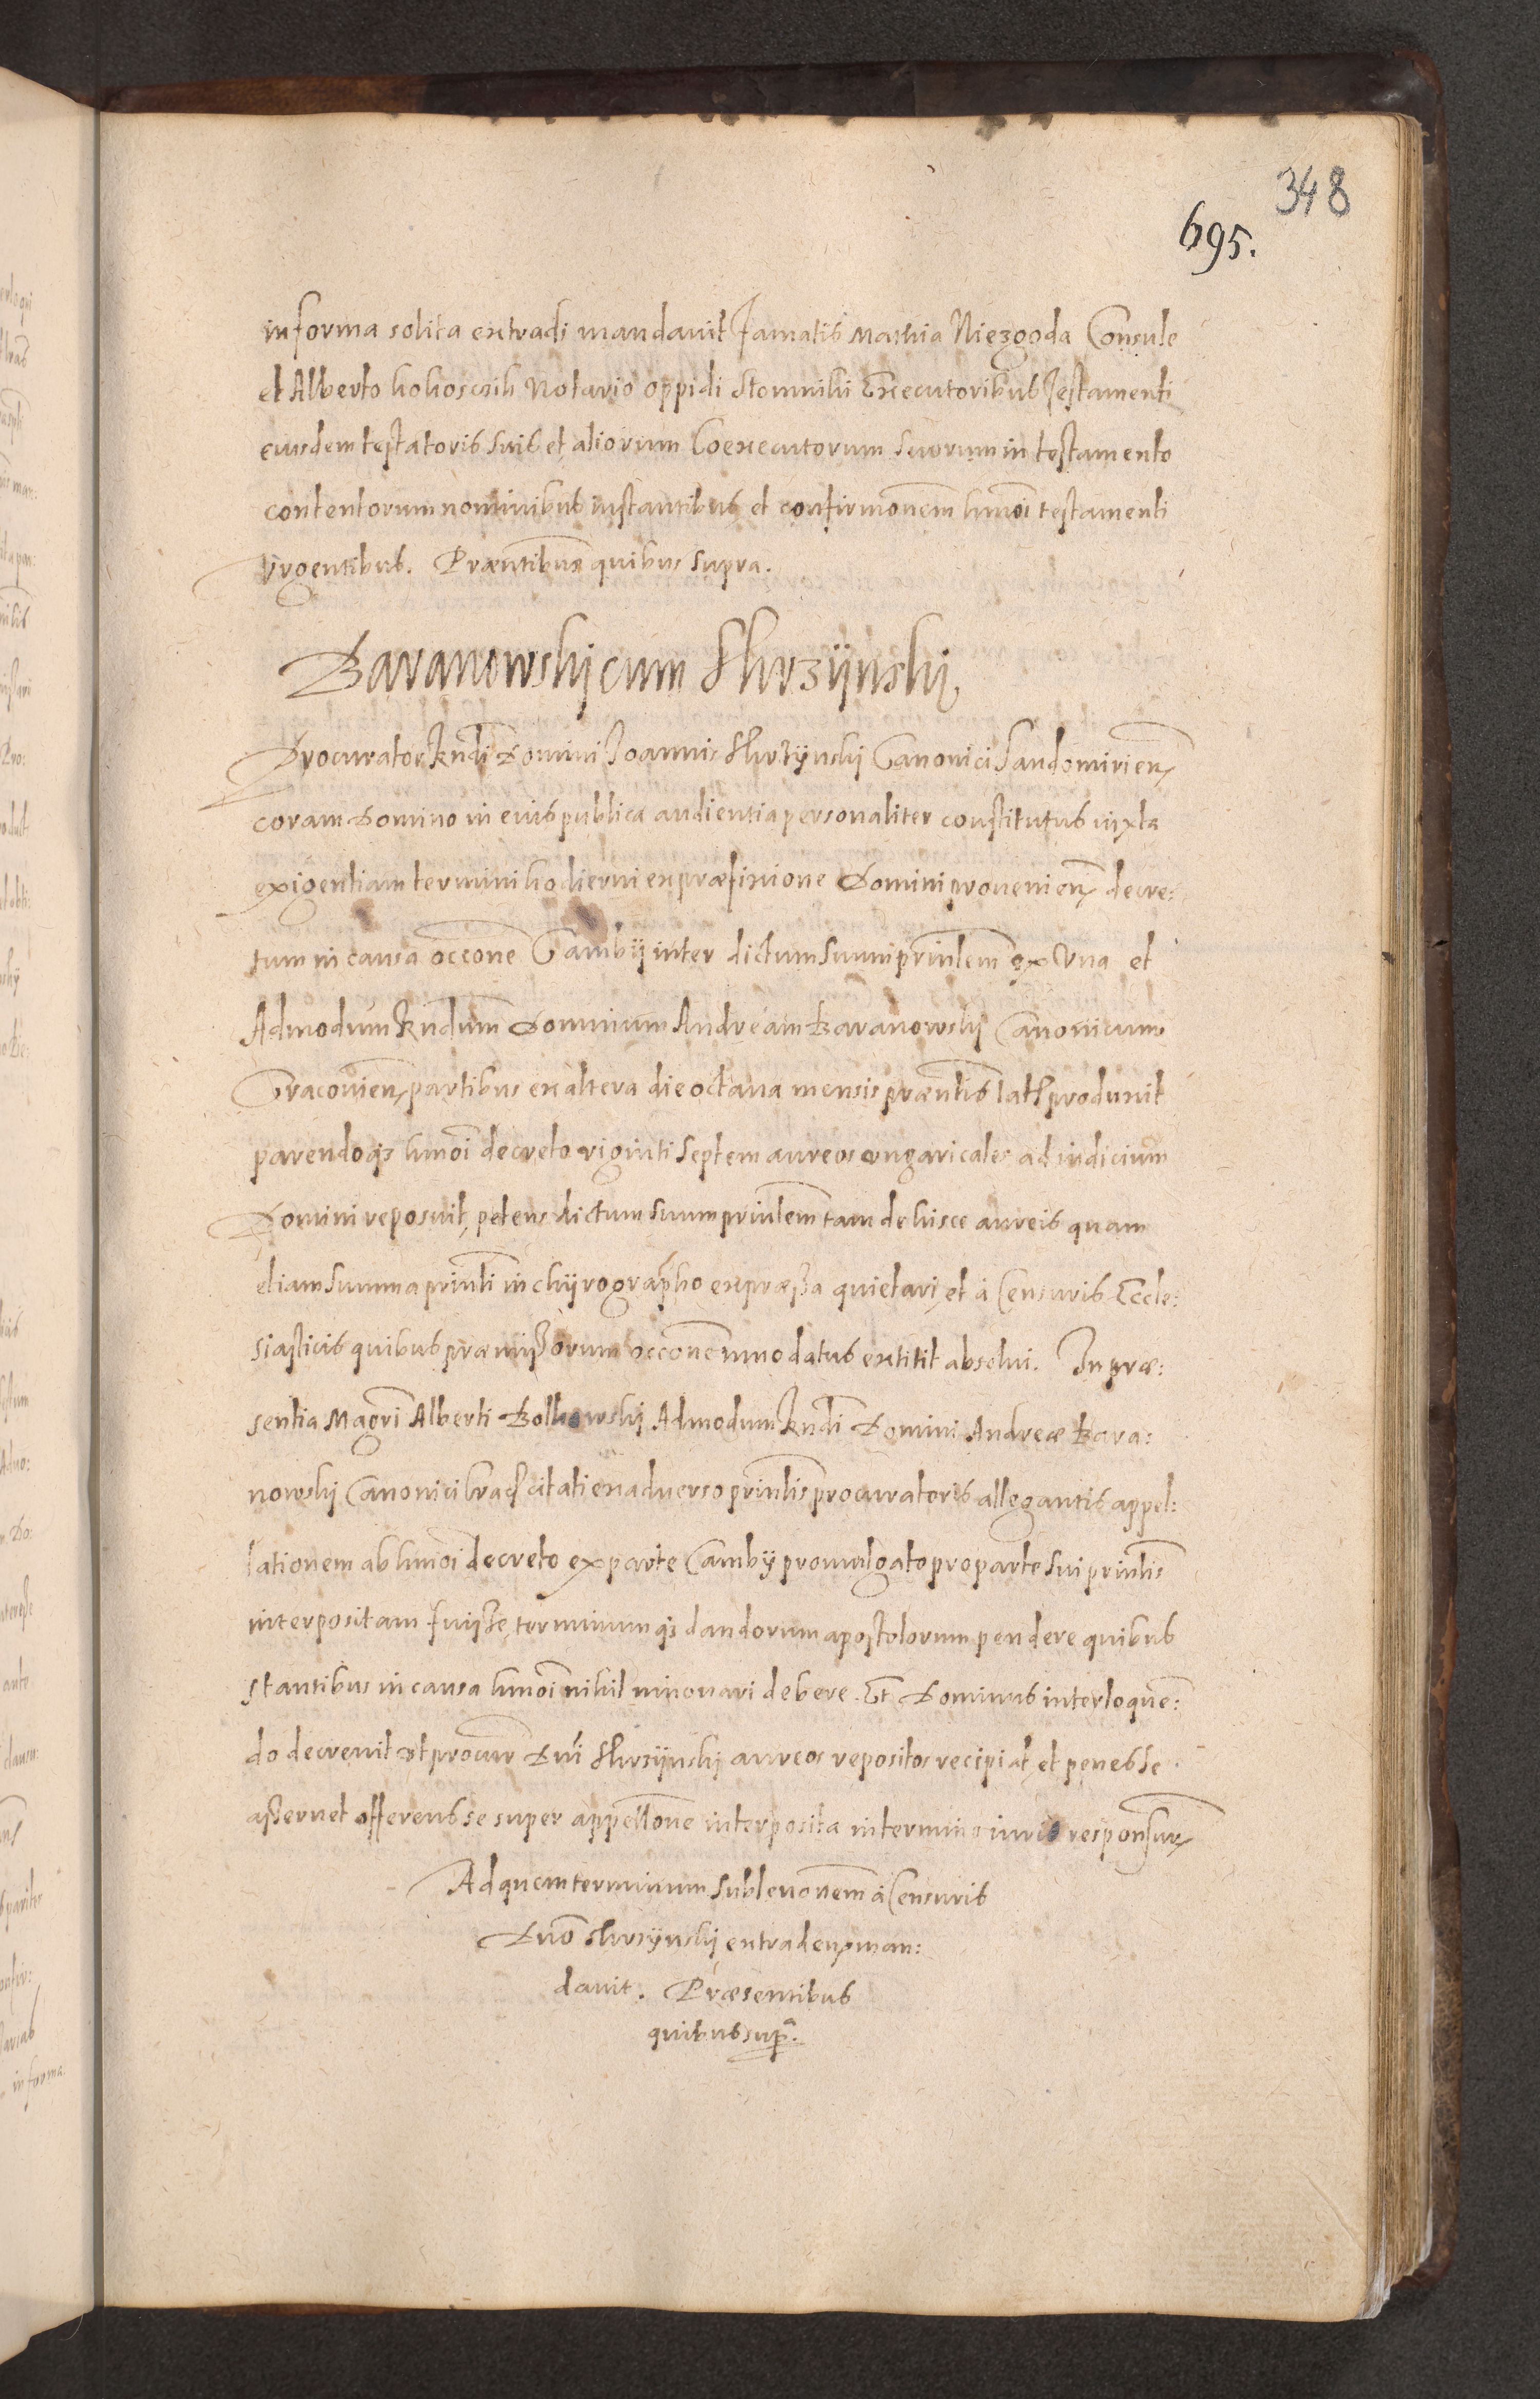 348
695.
in forma solita extradi mandavit Famatis Mathia Niezgoda Consule
et Alberto kokoszih Notario oppidi Slomniki Executoribus Testamenti
eiusdem testatoris suis et aliorum Coexecutorum suorum in testamento
contentorum nominibus instantibus et confirmonem hmoi testamenti
Urgentibus. Præntibus quibus supra.
Baranowskj cum Skrzÿnskj
Procurator Rndi Domini Joannis Skrzÿnskj Canonici Sandomirien
coram Domino in eius publica audientia personaliter constitutus iuxta
exigentiam termini hodierni ex præfixione Domini provenien decre:
tum in causa occone Cambij inter dictum suum prinlem ex Una et
Admodum Rndum Dominum Andream Baranowskj Canonicum
Cracovien partibus ex altera die octava mensis præntis lat produxit
parendoq3 hmoi decreto viginti septem aureos ungaricales ad iudicium
Domini reposuit, petens dictum suum prinlem tam de hisce aureis quam
etiam summa prinli in chÿrographo expræssa quietari, et à Censuris Eccle:
siasticis quibus præmissorum occone innodatus extitit absolvi. In præ:
sentia Magri Alberti Bolkowskj Admodum Rndi Domini Andreæ Bara:
nowskj Canonici Crac citati ex adverso prinlis procuratoris allegantis appel:
lationem ab hmoi decreto ex parte Cambÿ promulgato pro parte sui prinlis
interpositam fuisse, terminumq3 dandorum apostolorum pendere quibus
stantibus in causa hmoi nihil innovari debere. Et Dominus interloquen:
do decrevit ut procur Dni Skrzÿnskj aureos repositos recipiat, et penes se
asservet offerens se super appellone interposita in termino iuris responsur
Ad quem terminum sublevonem à Censuris
Dno Skrzÿnskj extraden man:
davit. Præsentibus
quibus sup.